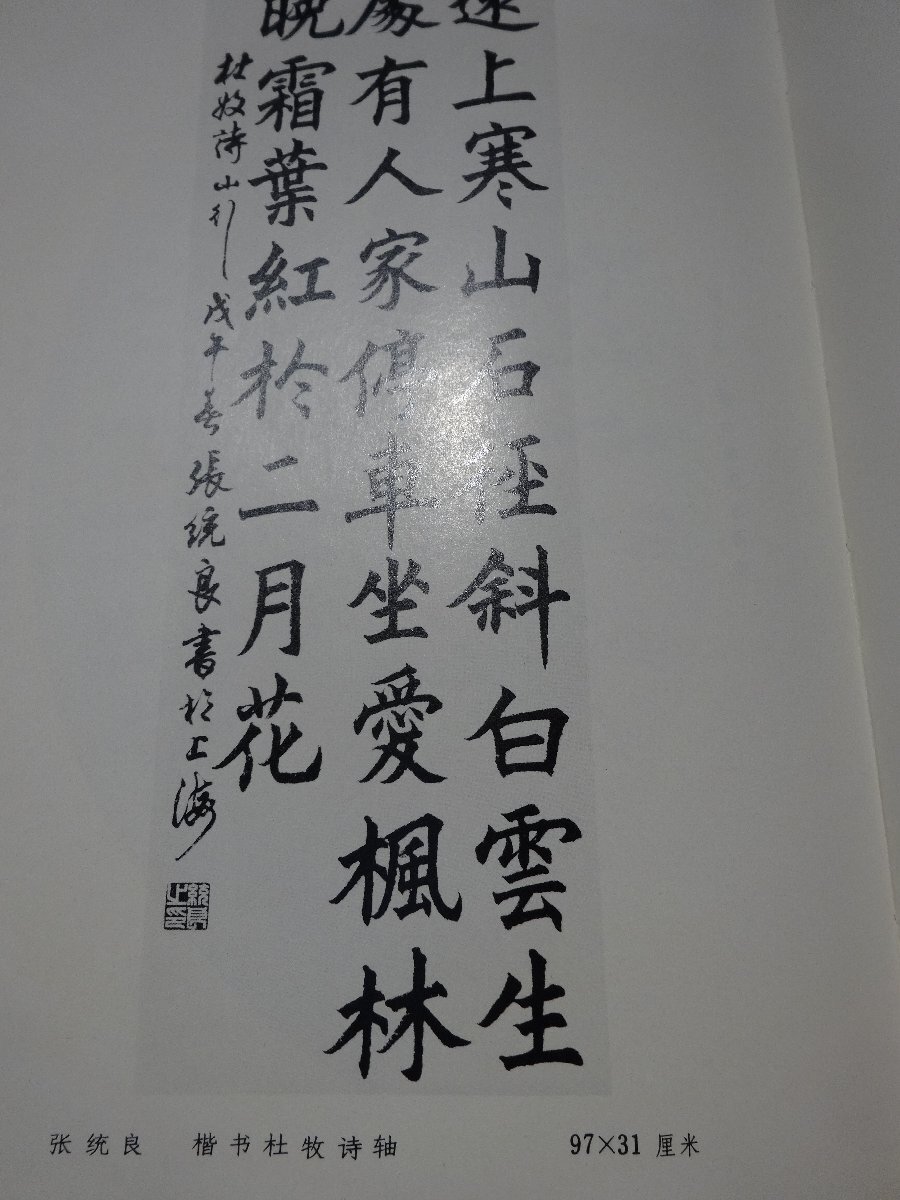 上寒山石徑斜白雲生
處有人家停車坐愛楓林
晚霜葉紅於二月花
杜牧詩山行 戊午春張統良書於上海
統良之印
张统良 楷书杜牧诗轴 97×31厘米